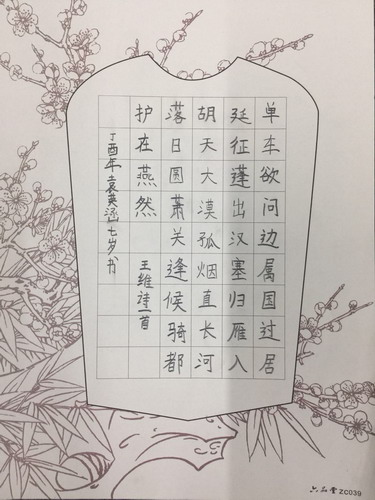 单车欲问边属国过居
廷征蓬出汉塞归雁入
胡天大漠孤烟直长河
落日圆萧关逢候骑都
护在燕然
王维诗一首
丁酉年袁英涵七岁书
六品堂 ZC039